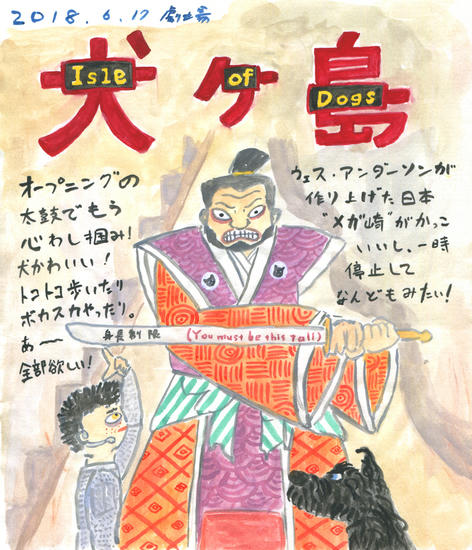 2018.6.17 劇場
犬ヶ島
Isle of Dogs
オープニングの
太鼓でもう
心わし掴み!
犬かわいい!
トコトコ歩いたり
ボカスカやったり。
あ〜
全部欲しい!
ウェス・アンダーソンが
作り上げた日本
"メガ崎"がかっこ
いいし、一時
停止して
なんどもみたい!
身長制限 (You must be this tall)